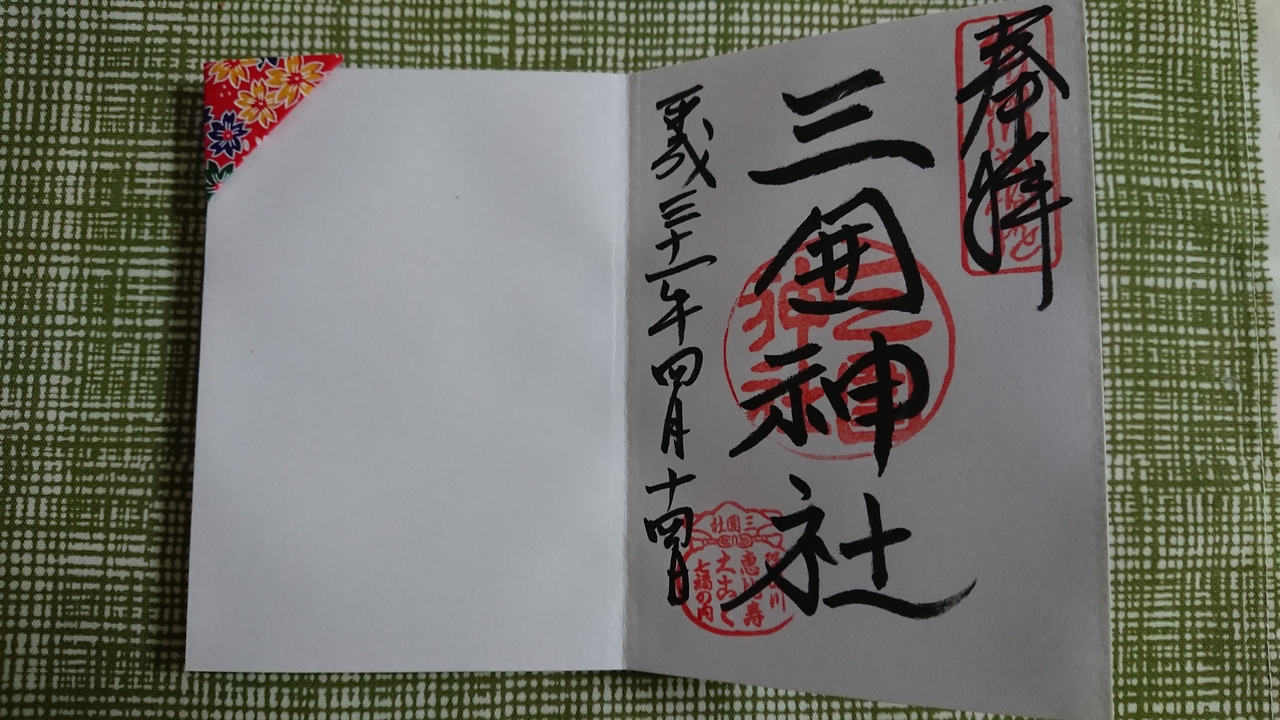 奉拝
三囲神社
平成三十一年四月十四日
三囲社
恵比寿
大こく
七福の内